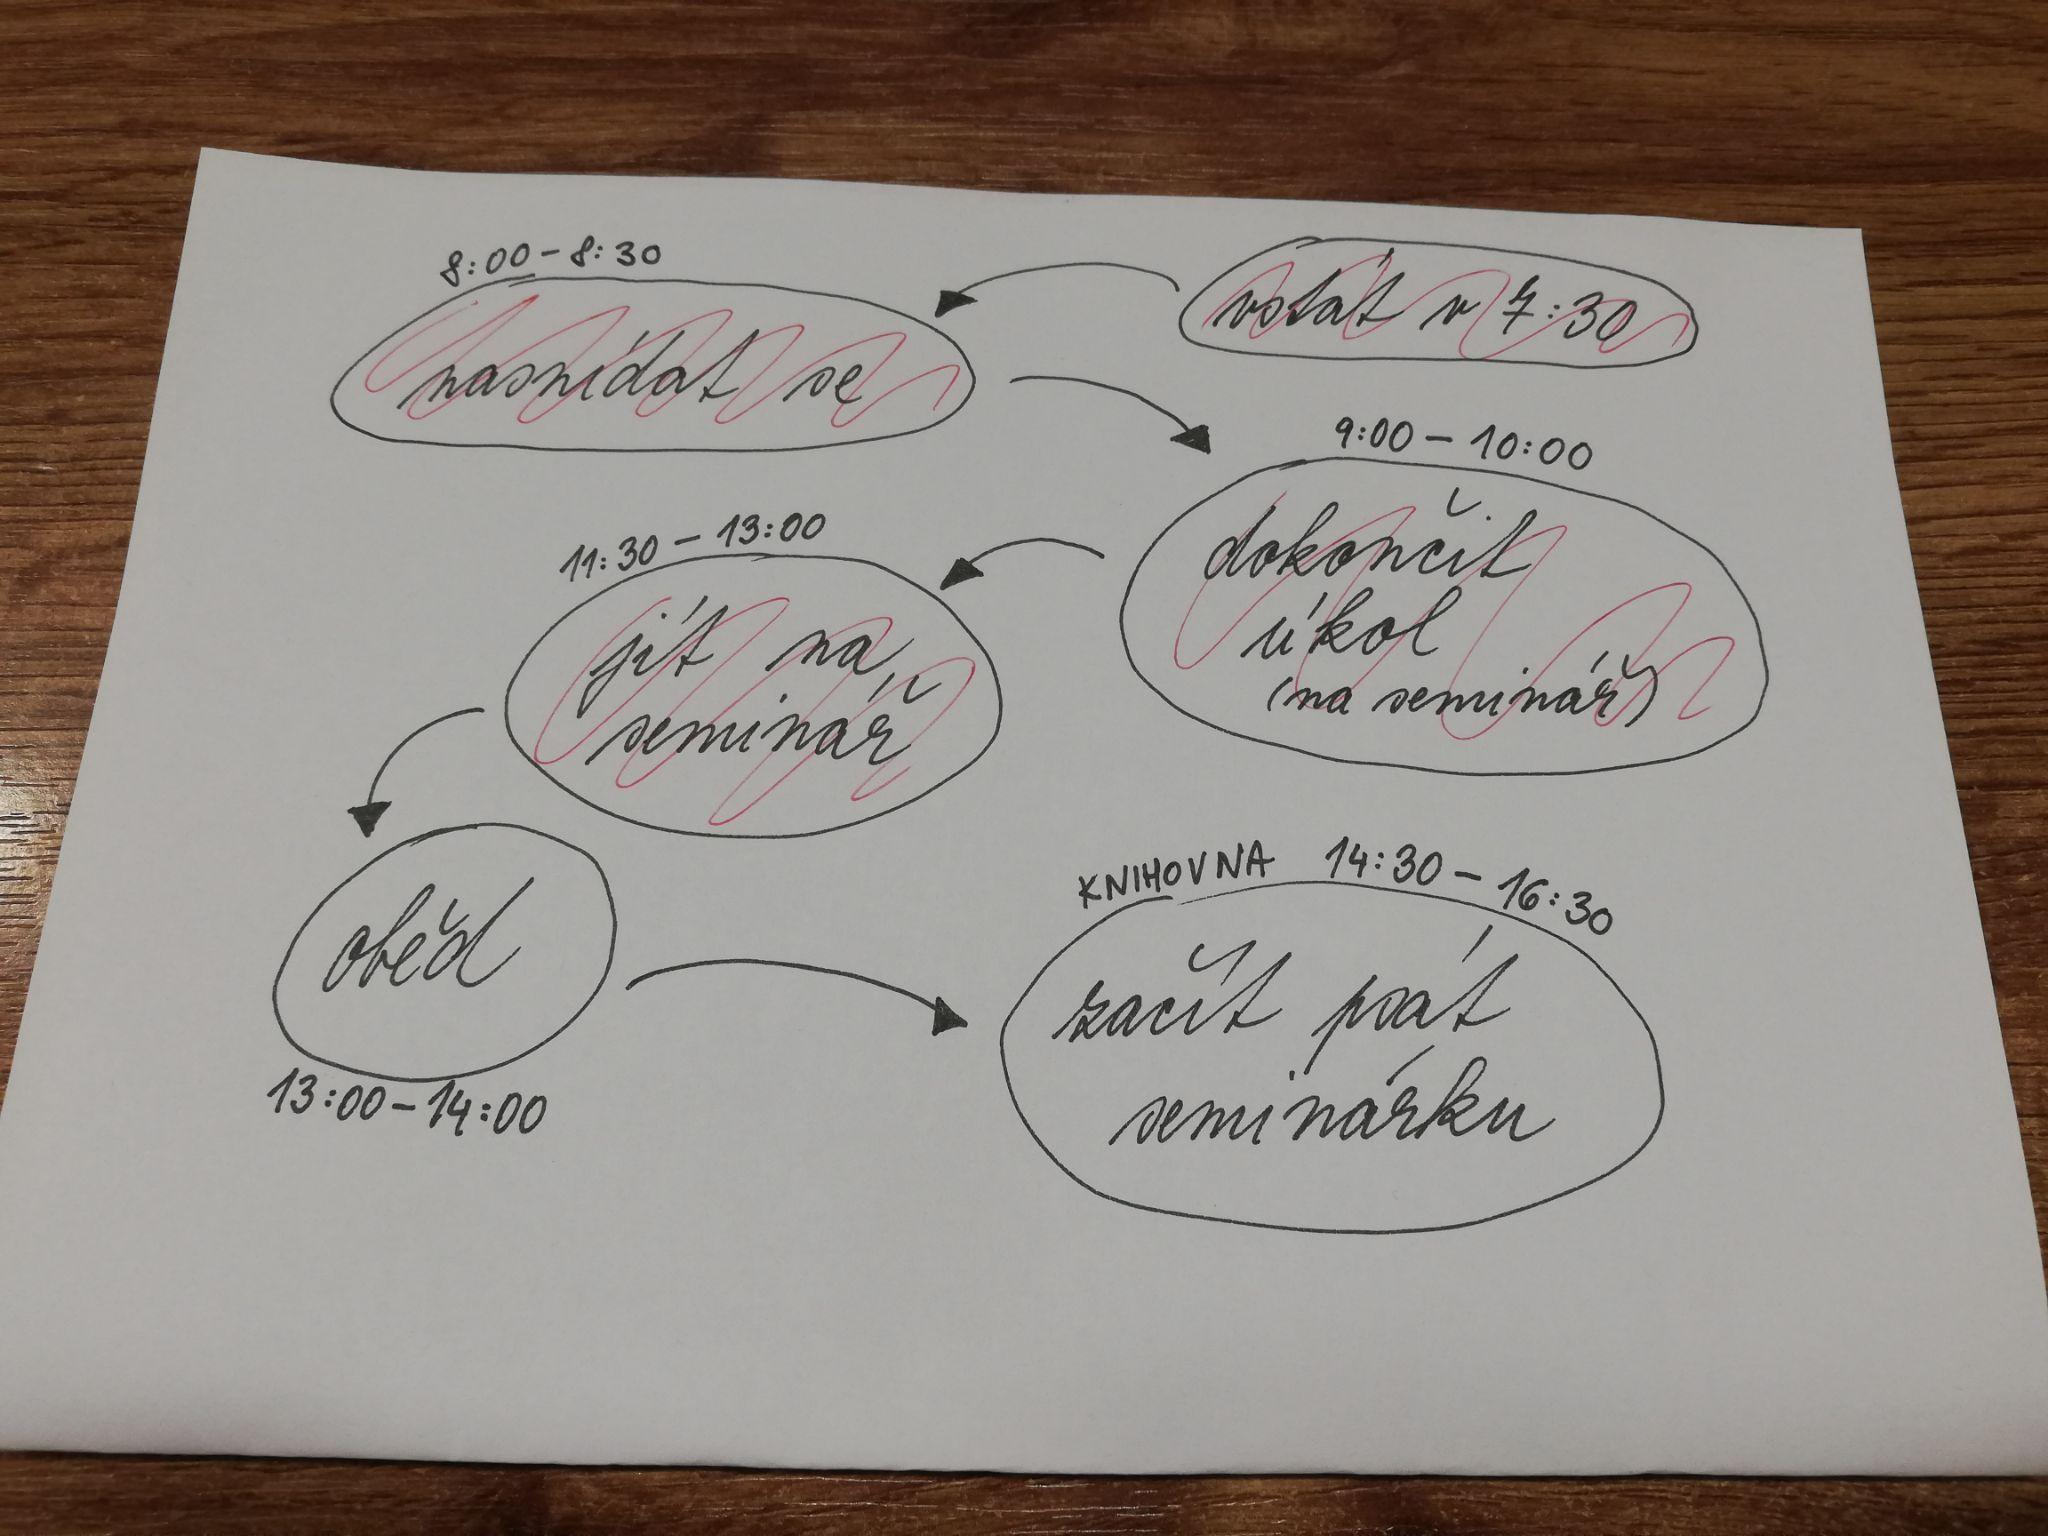 vstát v 7:30
8:00 – 8:30
nasnídat se
9:00 – 10:00
dokončit
úkol
(na seminář)
11:30 – 13:00
jít na
seminář
oběd
13:00 – 14:00
KNIHOVNA 14:30 – 16:30
začít psát
seminárku